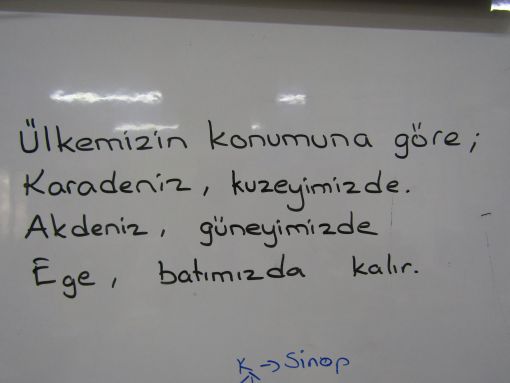 Ülkemizin konumuna göre;
Karadeniz, kuzeyimizde.
Akdeniz, güneyimizde
Ege, batımızda kalır.
K → Sinop